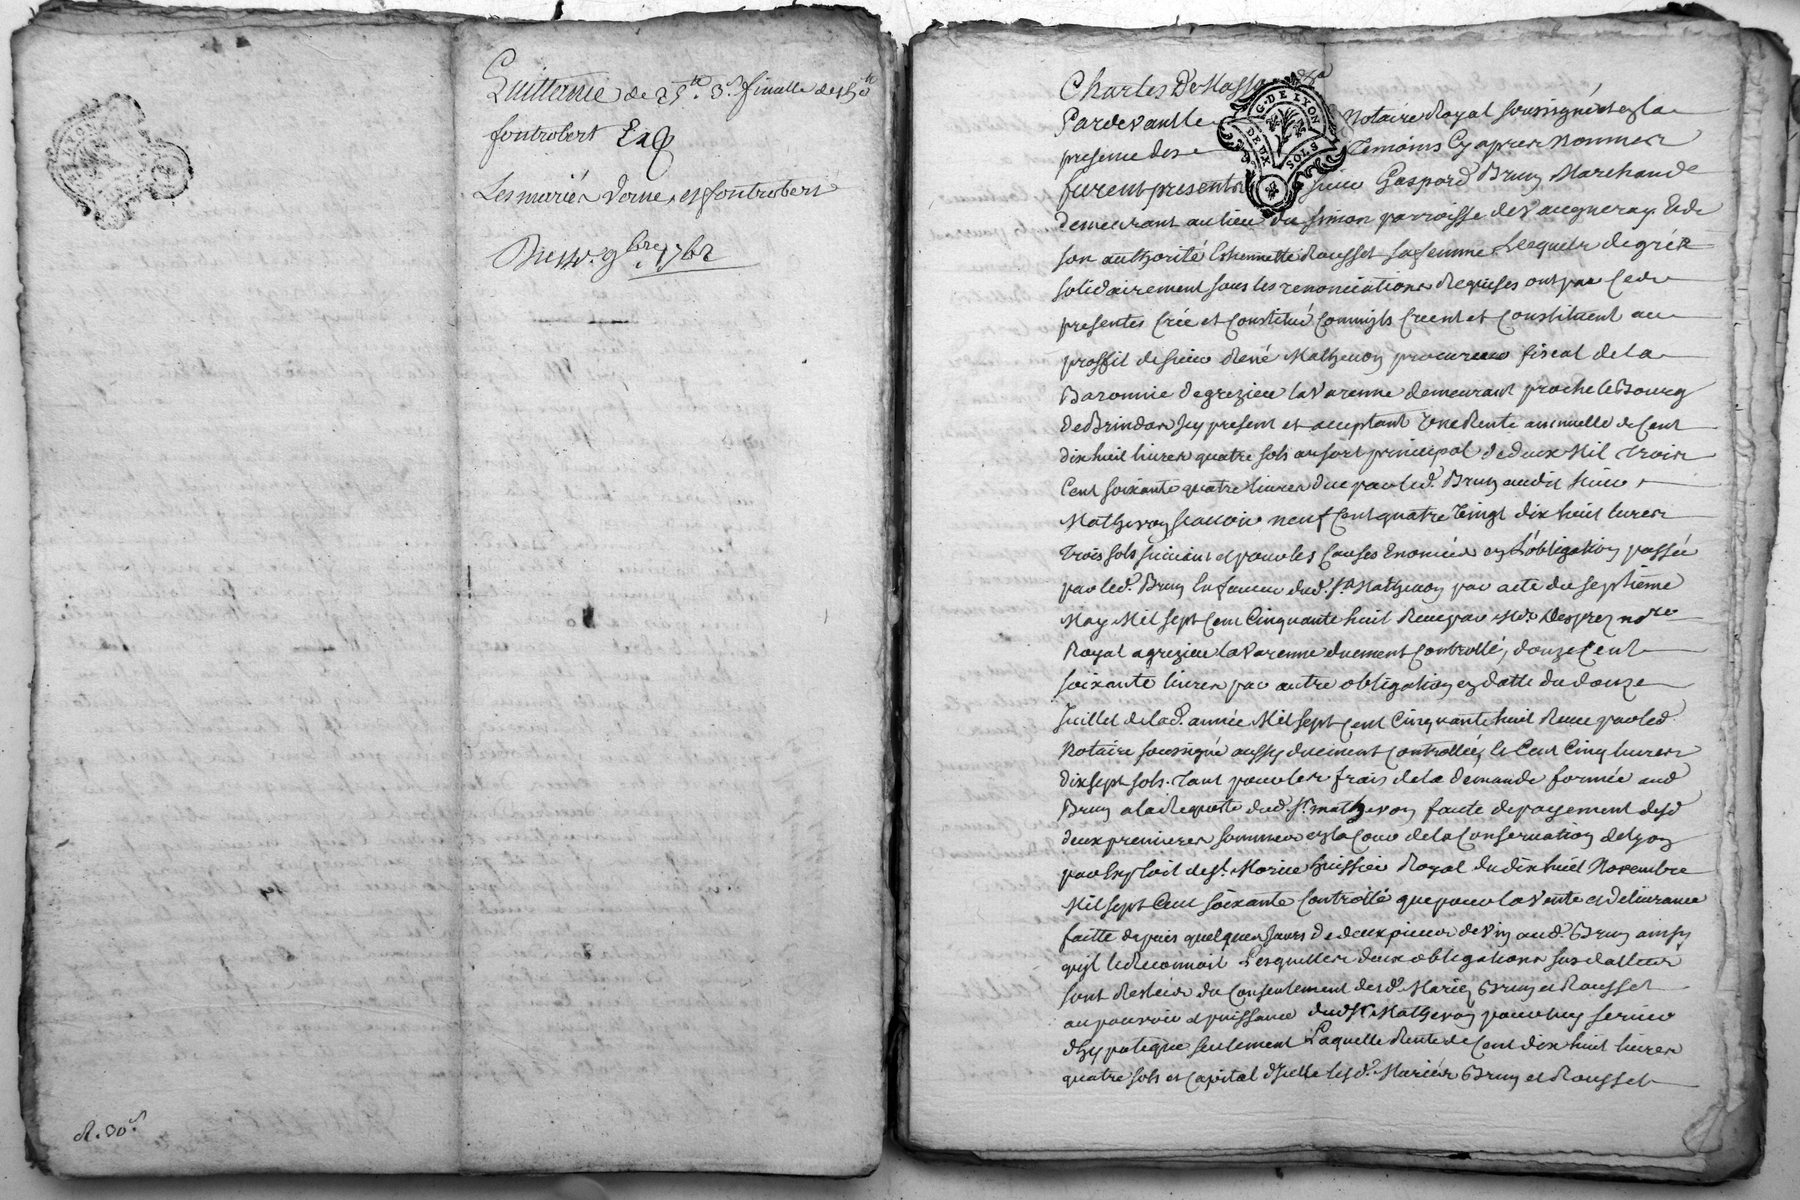 Quittance de 25ᵗᵗ. 3ˢ. finalle de 150ᵗᵗ
fontrobert
Les mariés Dorne et fontrobert
Du 14. 9bre. 1762
R. 30ˢ.
Charles De Masso
G. DE LYON
DEUX SOLS
Pardevant le Notaire Royal soussigné et en la
presence des temoins cy apres nommes
furent presents sieur Gaspard Brun Marchand
demeurant au lieu du simon parroisse de Vaugneray Et de
son authorité Ethiennette Rousset sa femme, Lesquels de gré &
solidairement sous les renonciations Requises ont par Ces
presentes Créé et Constitué Comm'ils Créent et Constituent au
proffit de sieur René Mathevon procureur fiscal de la
Baronnie de grezieu la Varenne demeurant proche le Bourg
de Brindas Icy present et acceptant Une Rente annuelle de Cent
dix huit livres quatre sols au sort principal de deux Mil trois
Cent soixante quatre livres due par led. Brun audit sieur
Mathevon scavoir neuf Cent quatre Vingt dix huit livres
trois sols suivant et pour les Causes Enoncées en L'obligation passée
par led. Brun En faveur dud. sr. Mathevon par acte du septième
May Mil sept Cent Cinquante huit Receu par Me. Desprez nore
Royal a grezieu la Varenne duement Controllé, douze Cent
soixante livres par autre obligation en datte du douze
Juillet de lad. année Mil sept Cent Cinquante huit Receue par led.
Notaire soussigné aussy duement Controllée, & Cent Cinq livres
dix sept sols tant pour les frais de la demande formée aud.
Brun a la Requette dud. sr. mathevon faute de payement desd.
deux premieres sommes en la Cour de la Conservation de Lyon
par Exploit de st. Morice huissier Royal du dix huit Novembre
Mil sept Cent soixante Controllé que pour la Vente et delivrance
faitte depuis quelques jours de deux pieces de Vin aud. Brun ainsy
qu'il le Reconnoit Lesquelles deux obligations sus dattées
sont Restées du Consentement desd. Mariés Brun et Rousset
au pouvoir et puissance dud. sr. Mathevon pour luy servir
d'hypoteque seulement Laquelle Rente de Cent dix huit livres
quatre sols et Capital d'icelle lesd. Mariés Brun et Rousset